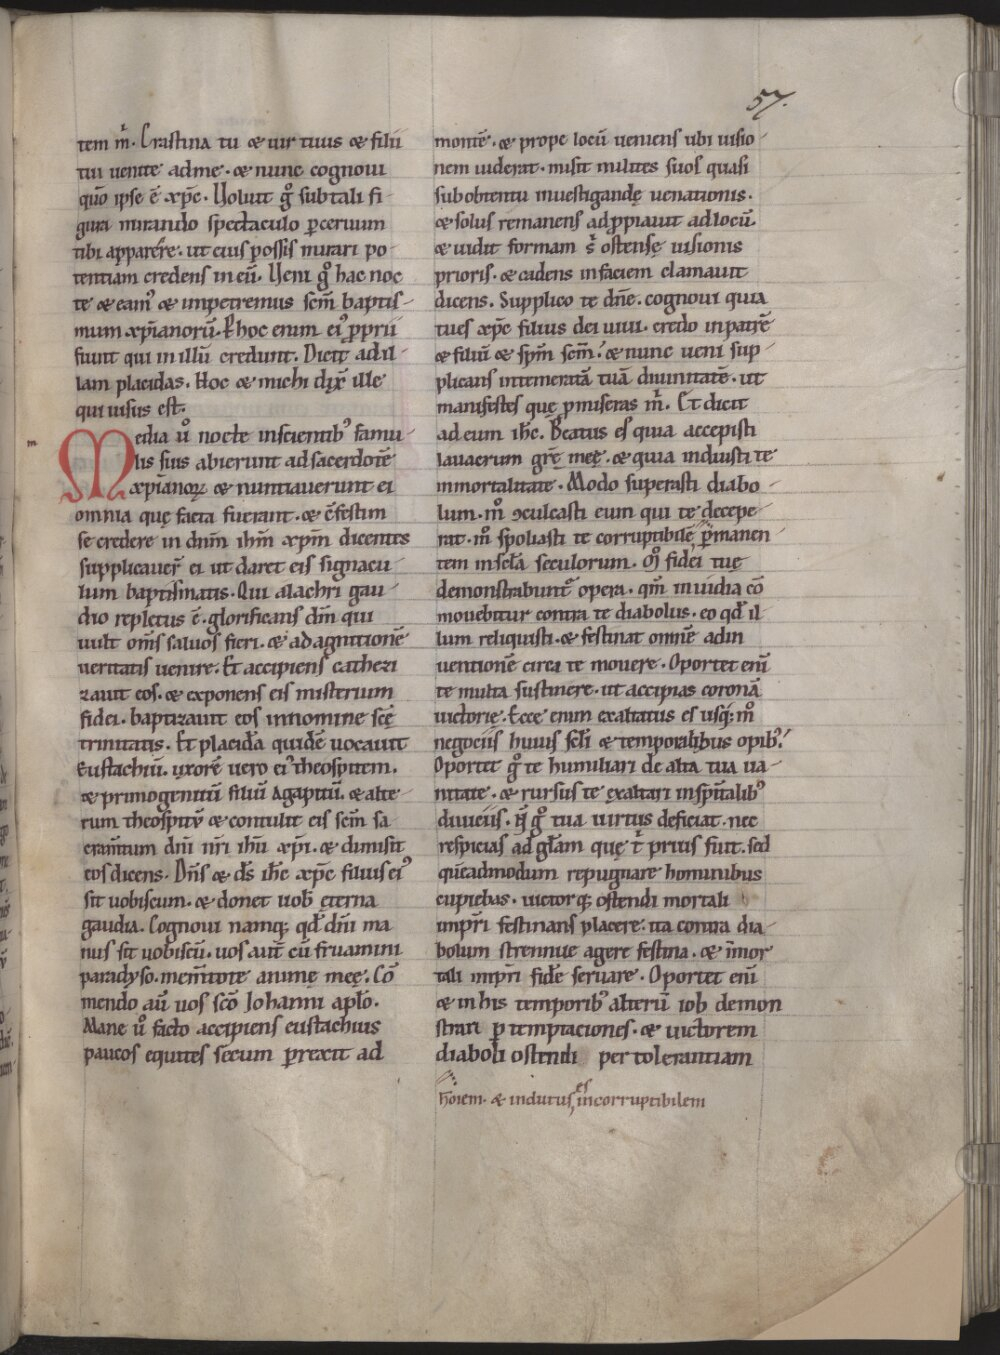 57.
tem m̄. Crastina tu & uir tuus & filii
tui uenite adme. & nunc cognoui
quō ipse ē xp̄c. Uoluit gͦ subtali fi-
gura mirando spectaculo ꝑceruum
tibi apparere. ut eius possis mirari po-
tentiam credens in eū. Ueni gͦ hac noc
te & eam᷒ & impetremus sc̄m baptis-
mum xp̄ianorū. Ꝑ hoc enim ei᷒ ꝓprii
fiunt qui in illū credunt. Dicit̄ ad il-
lam placidas. Hoc & michi dix̄ ille
qui uisus est.
Media ū nocte inscientib᷒ famu-
m
lis suis abierunt ad sacerdotē
xp̄ianoꝝ & nuntiauerunt ei
omnia quę facta fuerant. & c̄festim
se credere in dn̄m ihm̄ xp̄m dicentes
supplicauer̄ ei ut daret eis signacu-
lum baptismatis. Qui alachri gau-
dio repletus ē. glorificans dm̄ qui
uult om̄s saluos fieri. & ad agnitionē
ueritatis uenire. Et accipiens catheri
zauit eos. & exponens eis misterium
fidei. baptizauit eos innomine scę̄
trinitatis. Et placidā quidē uocauit
Eustachiū. uxorē uero ei᷒ theospitem.
& primogenitū filiū Agapitū. & alte-
rum theospitū & contulit eis sc̄m sa
cram̄tum dn̄i nr̄i ihū xp̄i. & dimisit
eos dicens. Dn̄s & ds̄ ihc̄ xp̄c filius ei᷒
sit uobiscum. & donet uob̄ ęterna
gaudia. Cognoui namq; qd̄ dn̄i ma
nus sit uobiscū. uos aut̄ cū fruamini
paradyso. mem̄tote animę meę. Cō
mendo aū uos sc̄o Iohanni apl̄o.
Mane ū facto accipiens eustachius
paucos equites secum ꝑrexit ad
montē. & prope locū ueniens ubi uisio-
nem uiderat. misit milites suos quasi
subobtentu inuestigandę uenationis.
& solus remanens adꝓpiauit adlocū.
& uidit formam s̄ ostensę uisionis
prioris. & cadens infaciem clamauit
dicens. Supplico te dn̄e. cognoui quia
tues xp̄c filius dei uiui. credo inpatrē
& filiū & sp̄m sc̄m. & nunc ueni sup-
plicans intemeratā tuā diuinitatē. ut
manifestes quę ꝓmiseras m̄. Et dicit
ad eum ihc̄. Beatus es quia accepisti
lauacrum gr̄ę meę. & quia induisti te
inmortalitate. Modo superasti diabo-
lum. m̊ ꝯculcasti eum qui te decepe-
rat. m̊ spoliasti te corruptibilē ꝑmanen-
tem inscl̄a seculorum. M̊ fidei tuę
demonstrabunt᷑ opera. qm̄ inuidia cō
mouebitur contra te diabolus. eo qd̄ il-
lum reliquisti. & festinat omnē adin
uentionē circa te mouere. Oportet eni̅
te multa sustinere. ut accipias coronā
uictorię. Ecce enim exaltatus es usq; m̊
negociis huius scl̄i & temporalibus opib᷒.
Oportet gͦ te humiliari de alta tua ua-
nitate. & rursus te ęxaltari insp̄italib᷒
diuiciis. N̄ gͦ tua uirtus deficiat. nec
respicias ad gl̄am quę t̄ prius fuit. sed
quēadmodum repugnare hominibus
cupiebas. uictorq; ostendi mortali
imp̄ri festinans placere: ita contra dia-
bolum strennue agere festina. & īmor
tali imp̄ri fidē seruare. Oportet eni̅
& in his temporib᷒ alterū iob demon
strari ꝑ temptaciones. & uictorem
diaboli ostendi per tolerantiam
hōiem. & indutus es incorruptibilem